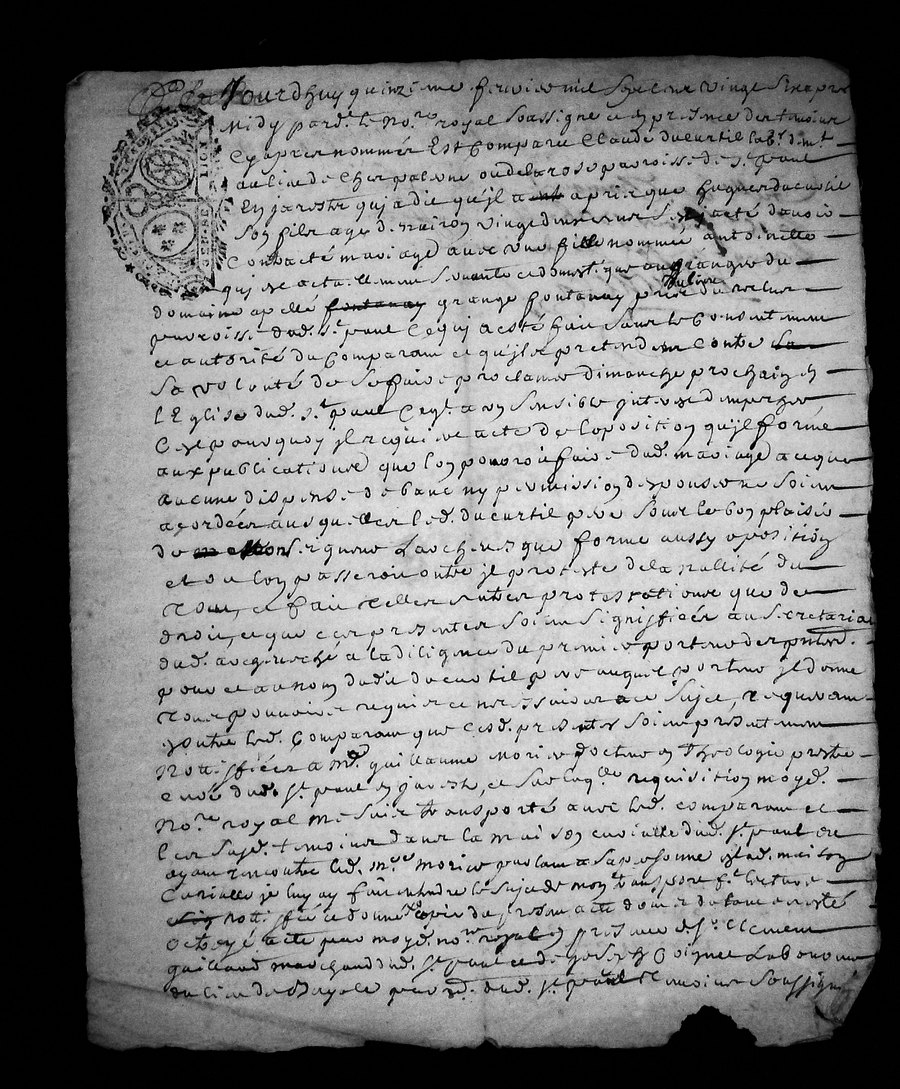 Jourdhuy quinzieme fevrier mil sept cent vingt six apres
Midy pard. le No.re royal Soussigne et en presence des temoins
Cy apres nommés Est Comparu Claude ducurtil lab.r dem.t
au lieu de paroisse de S.t paul
En jarest qui a dit qu'il a apris que hugues ducurtil
Son fils agé d'environ vingt deux ans Seroit jacté davoir
Contracté mariage avec une fille nommée antoinette
qui est actuellement Servante et domestique au granger du
domaine apellé fontanay grange fontanay
paroisse dud. S.t paul Ce qui a esté fait Sans le Consentement
et autorité du Comparant et qu'ils pretendent Contre Sa
Sa volonté de Se faire proclamer dimanche prochain en
LEglise dud. S.t paul Ceyt a un Sensible interest dempecher
C'est pourquoy il requiert acte de loposition qu'il forme
aux publications que lon pouroit faire dud. mariage et a ce que
aucune dispense de banc ny permission despouser ne Soient
acordées ausquelles led. ducurtil pere Sous le bon plaisir
de Monseigneur Larcheveque forme aussy oposition
et ou lon passeroit outre il proteste de la nullité du
tout, et fait telles autres protestations que de
droit, et que ces presentes Soient Signiffiées au Secretariat
dud. archeveché a la diligence du premier porteur des pntes.
pour et au nom dud. ducurtil pere auquel porteur il donne
tout pouvoir requis et necessaire a ce Sujet, requerant
en outre led. Comparant que Cesd. presentes Soient presentement
Nottiffiées a M.e guillaume Morier docteur en theologie prestre
curé dud. S.t paul en jarest, et Sur laq.lle requisition moyd.
No.re royal me Suis transporté avec led. comparant et
les Susd. temoins dans la maison curialle dud. S.t paul ou
ayant rencontré led. M.re Morier parlant a Sa personne maison
Curialle je luy ay fait entendre le Sujet de mon transport lecture
nottiffié et donné copie du present acte dont et du tout a esté
Octroyé acte par moyd. no.re royal en presence de S.r Clement
guillaud marchand dud. S.t paul et de Joseph Laboureur
du lieu de paro. dud. S.t paul temoins Soussignés
GENER
LION